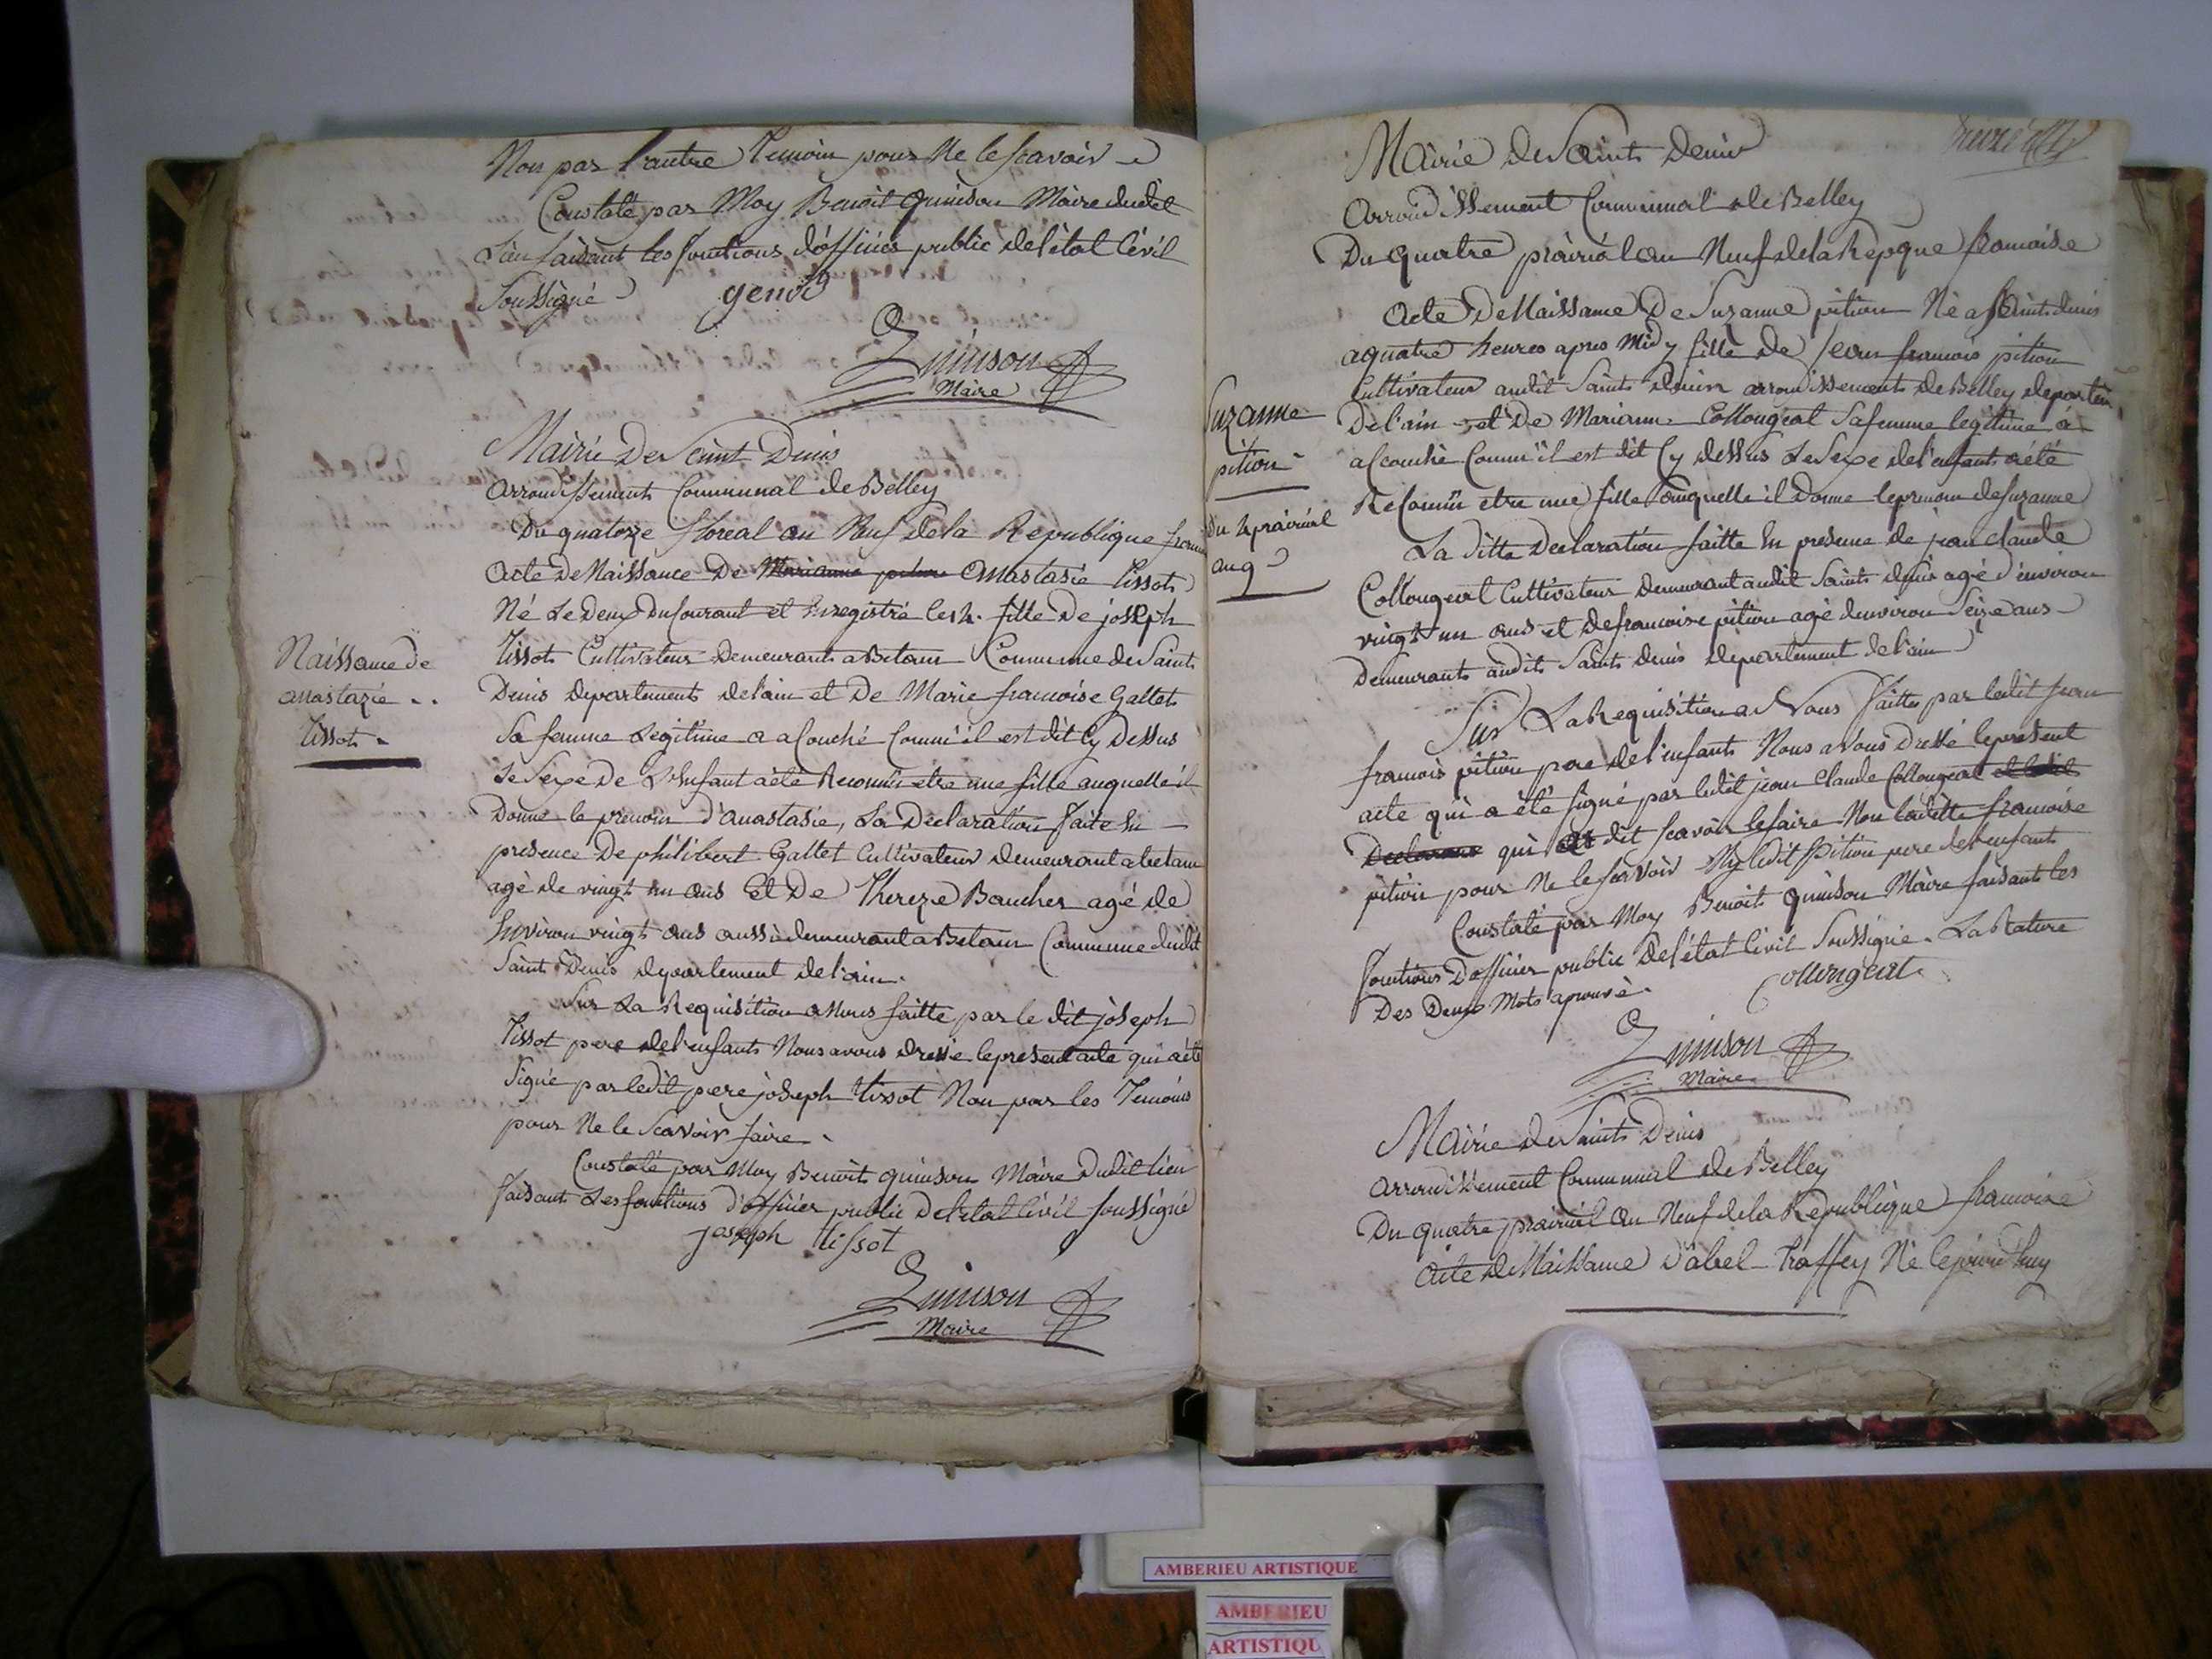 Non par l'autre Temoin pour Ne le scavoir
Constaté par Moy Benoit quinson Maire dudit
Lieu faisant les fonctions d'officier public de l'état Civil
Soussigné genod
Quinson
Maire
Mairie De Saint Denis
arrondissement Communal de Belley
Du quatorze floreal an Neuf de la Republique
Acte de Naissance De Marianne Anastasie tissot
Né Le Deux Du Courant et Enregistré le 14. fille De joseph
Naissance de
anastazie ..
tissot
tissot Cultivateur Demeurant a Betan Commune de Saint
Denis Departement de l'ain et De Marie francoise Gallet
Sa femme Legitime a acouché Comm'il est dit Cy Dessus
Le Sexe De L'Enfant a été Reconnu etre une fille auquelle il
Donne le prenom d'anastasie, La Declaration faite En
presence De philibert Gallet Cultivateur demeurant a betan
agé de vingt un ans Et De Thereze Boucher agé de
Environ vingt ans aussi demeurant a Betan Commune dudit
Saint Denis departement de l'ain.
Sur La Requisition a Nous faitte par le dit joseph
tissot pere de l'enfant Nous avons dressé le present acte qui a été
Signé par ledit pere joseph tissot Non par les Temoins
pour Ne le Scavoir faire.
Constaté par Moy Benoit quinson Maire Dudit lieu
faisant Les fonctions d'officier public De l'etat Civil soussigné
joseph tissot
Quinson
Maire
Mairie de Saint Denis
Arrondissement Communal de Belley
Du quatre prairial an Neuf de la Repque francaise
Acte De Naissance De Suzanne pition Né a Saint denis
a quatre heures apres Midy fille de Jean francois pition
Cultivateur audit Saint Denis arrondissement De Belley
Suzanne
pition
Du 4 prairial
an 9
De l'ain et De Marianne Collougeat Sa femme legitime a
acouché Comm'il est dit Cy dessus Le Sexe de l'enfant a été
Reconnu etre une fille auquelle il Donne le prenom de Suzanne
La ditte Declaration faitte En presence de jean claude
Collougeat Cultivateur Demeurant audit Saint denis agé d'environ
vingt un ans et de francoise pition agé denviron Seize ans
Demeurant audit Saint Denis departement de l'ain
Sur La Requisition a Nous faitte par ledit jean
francois pition pere de l'enfant Nous avons Dressé le present
acte qui a été signé par ledit jean claude Collougeat et ledit
Declarant qui dit scavoir le faire Non ladette francoise
pition pour Ne le scavoir Ny ledit Pition pere de l'enfant
Constaté par Moy Benoit quinson Maire faisant les
fonctions D'officier public de l'état Civil Soussigné. La Rature
Des Deux Mots aprouvé. Collongeat
Quinson
Maire
Mairie de Saint Denis
arrondissement Communal de Belley
Du quatre prairial an Neuf de la Republique francoise
Acte de Naissance d'abel traffey Né le jourd'huy
AMBERIEU ARTISTIQUE
AMBERIEU
ARTISTIQU